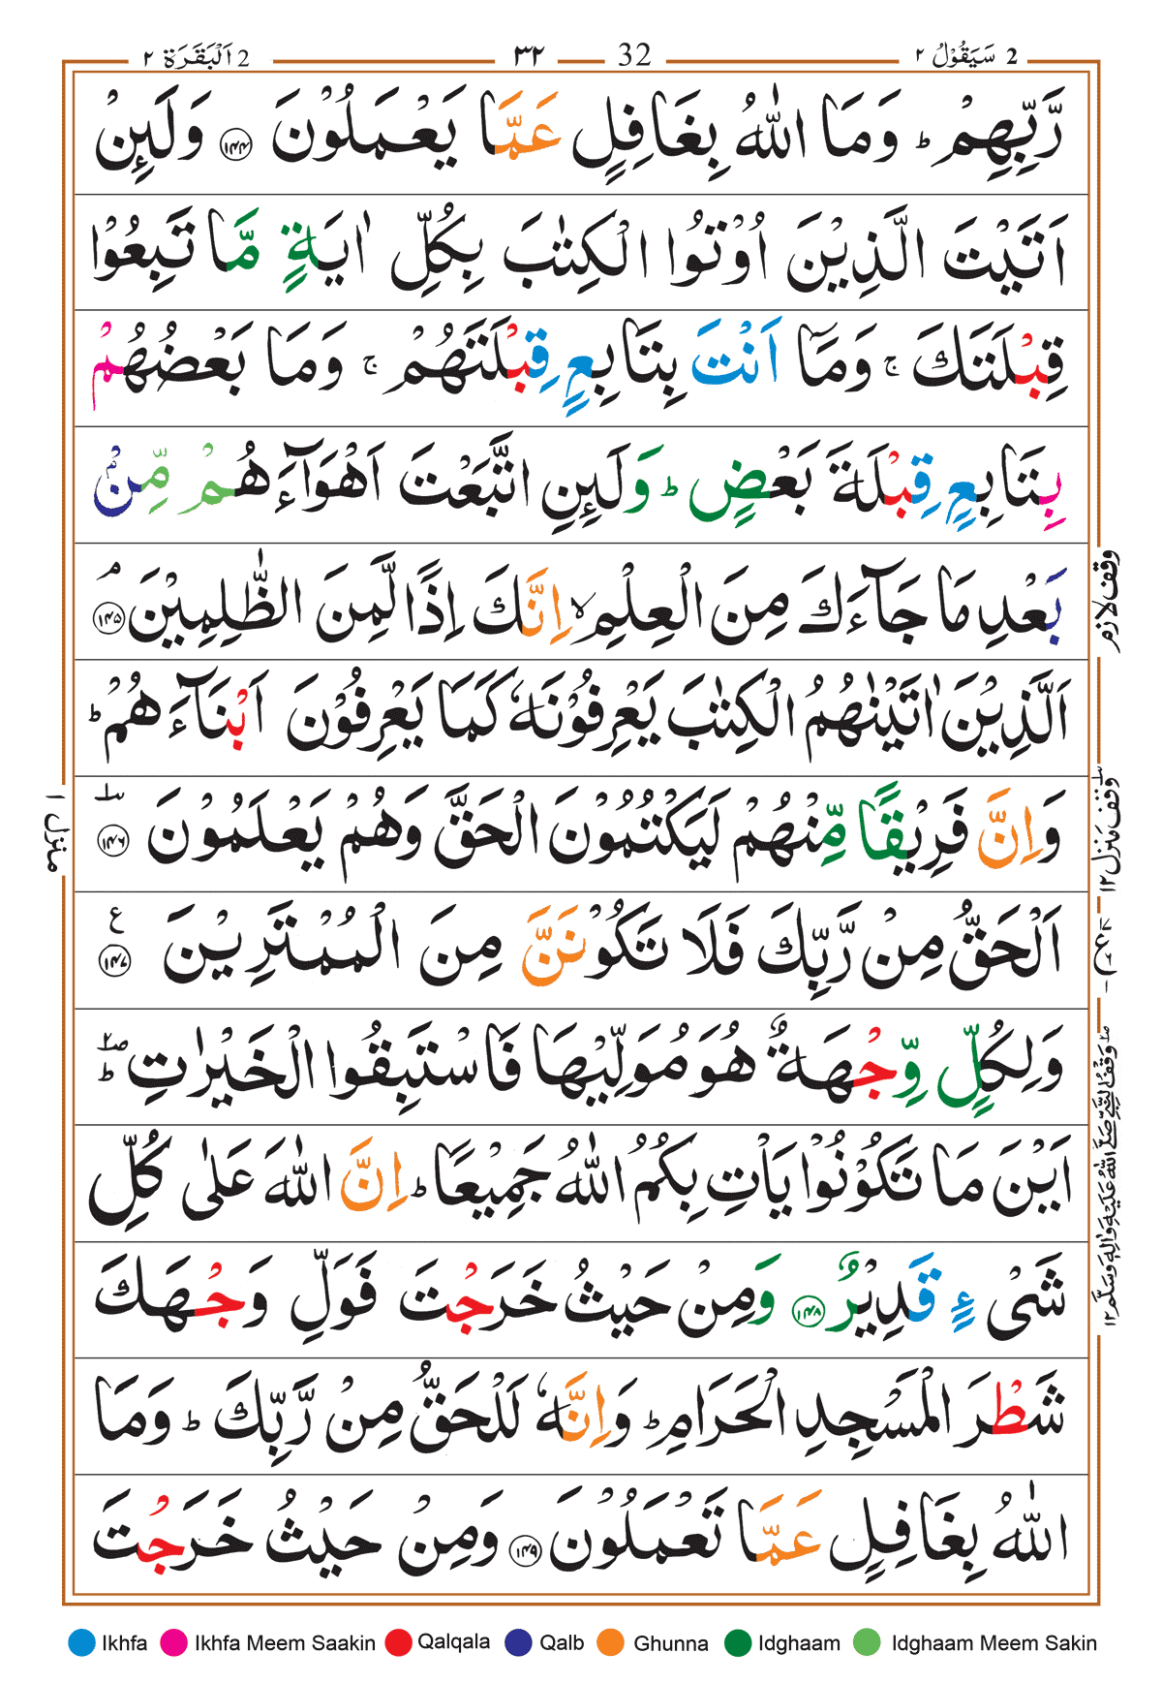 2 سَيَقُوْلُ ٢ ٣٢ 32 2 اَلْبَقَرَة ٢
رَّبِّهِمْ ؕ وَمَا اللّٰهُ بِغَافِلٍ عَمَّا يَعْمَلُوْنَ ﴿۱۴۴﴾ وَلَئِنْ
اَتَيْتَ الَّذِيْنَ اُوْتُوا الْكِتٰبَ بِكُلِّ اٰيَةٍ مَّا تَبِعُوْا
قِبْلَتَكَ ۚ وَمَاۤ اَنْتَ بِتَابِعٍ قِبْلَتَهُمْ ۚ وَمَا بَعْضُهُمْ
بِتَابِعٍ قِبْلَةَ بَعْضٍ ؕ وَلَئِنِ اتَّبَعْتَ اَهْوَآءَهُمْ مِّنْۢ
بَعْدِ مَا جَآءَكَ مِنَ الْعِلْمِ ۙ اِنَّكَ اِذًا لَّمِنَ الظّٰلِمِيْنَ ۘ ﴿۱۴۵﴾
اَلَّذِيْنَ اٰتَيْنٰهُمُ الْكِتٰبَ يَعْرِفُوْنَهٗ كَمَا يَعْرِفُوْنَ اَبْنَآءَهُمْ ؕ
وَاِنَّ فَرِيْقًا مِّنْهُمْ لَيَكْتُمُوْنَ الْحَقَّ وَهُمْ يَعْلَمُوْنَ ﴿۱۴۶﴾
اَلْحَقُّ مِنْ رَّبِّكَ فَلَا تَكُوْنَنَّ مِنَ الْمُمْتَرِيْنَ ﴿۱۴۷﴾ ع
وَلِكُلٍّ وِّجْهَةٌ هُوَ مُوَلِّيْهَا فَاسْتَبِقُوا الْخَيْرٰتِ ؕ
اَيْنَ مَا تَكُوْنُوْا يَاْتِ بِكُمُ اللّٰهُ جَمِيْعًا ؕ اِنَّ اللّٰهَ عَلٰى كُلِّ
شَىْءٍ قَدِيْرٌ ﴿۱۴۸﴾ وَمِنْ حَيْثُ خَرَجْتَ فَوَلِّ وَجْهَكَ
شَطْرَ الْمَسْجِدِ الْحَرَامِ ؕ وَاِنَّهٗ لَلْحَقُّ مِنْ رَّبِّكَ ؕ وَمَا
اللّٰهُ بِغَافِلٍ عَمَّا تَعْمَلُوْنَ ﴿۱۴۹﴾ وَمِنْ حَيْثُ خَرَجْتَ
وقف لازم
وقف منزل ١٢
وَقْفُ النَّبِيِّ صَلَّى اللّٰهُ عَلَيْهِ وَاٰلِهٖ وَسَلَّمَ ١٢
منزل ١
Ikhfa Ikhfa Meem Saakin Qalqala Qalb Ghunna Idghaam Idghaam Meem Sakin